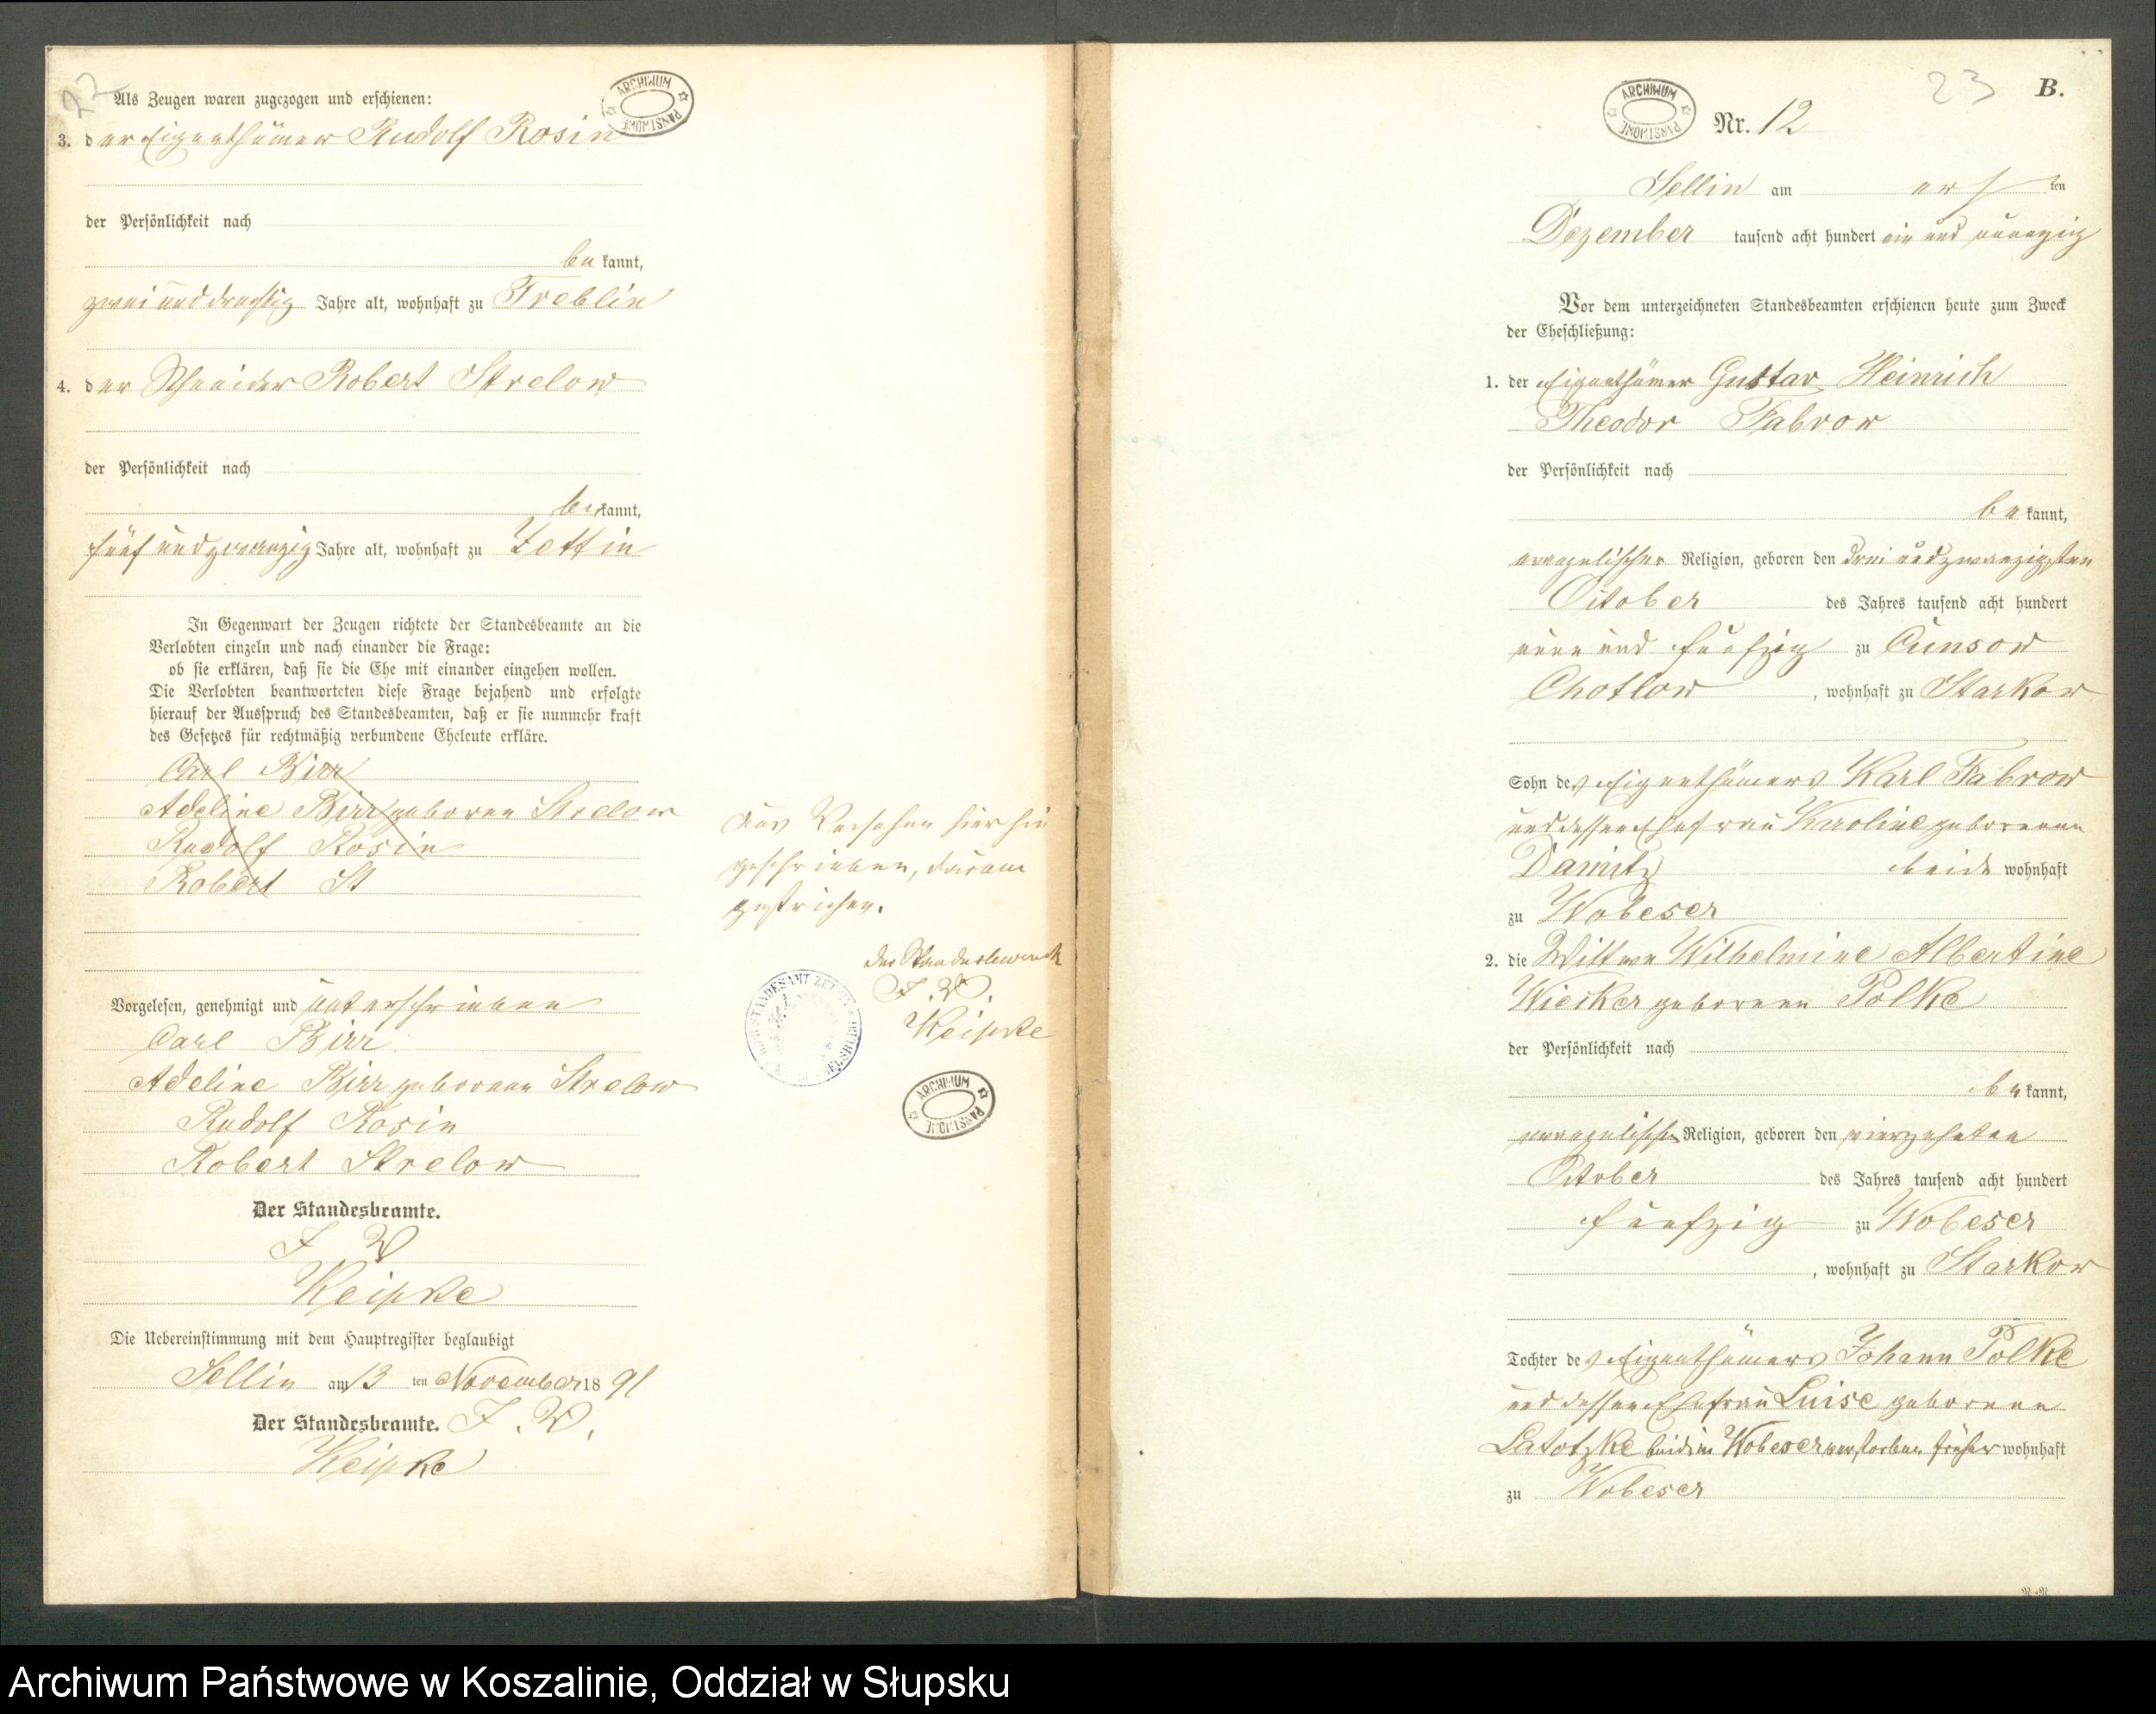 22
Als Zeugen waren zugezogen und erschienen:
3. der Eigenthümer Rudolf Rosin
der Persönlichkeit nach
be kannt,
zwei und dreißig Jahre alt, wohnhaft zu Treblin
4. der Schneider Robert Strelow
der Persönlichkeit nach
be kannt,
fünf und zwanzig Jahre alt, wohnhaft zu Zettin
In Gegenwart der Zeugen richtete der Standesbeamte an die
Verlobten einzeln und nach einander die Frage:
ob sie erklären, daß sie die Ehe mit einander eingehen wollen.
Die Verlobten beantworteten diese Frage bejahend und erfolgte
hierauf der Ausspruch des Standesbeamten, daß er sie nunmehr kraft
des Gesetzes für rechtmäßig verbundene Eheleute erkläre.
Carl Birr
Adeline Birr geborene Strelow
Rudolf Rosin
Robert St
Vorgelesen, genehmigt und unterschrieben
Carl Birr
Adeline Birr geborene Strelow
Rudolf Rosin
Robert Strelow
Der Standesbeamte.
I V
Keipke
Die Uebereinstimmung mit dem Hauptregister beglaubigt
Sellin am 13 ten November 18 91
Der Standesbeamte. I. V.
Keipke
Aus Versehen hier hin
geschrieben, darum
gestrichen.
Der Standesbeamte
I. V.
Keipke
ARCHIWUM PAŃSTWOWE
ARCHIWUM PAŃSTWOWE
ARCHIWUM PAŃSTWOWE
23
B.
Nr. 12
Sellin am ersten
Dezember tausend acht hundert ein und neunzig
Vor dem unterzeichneten Standesbeamten erschienen heute zum Zweck
der Eheschließung:
1. der Eigenthümer Gustav Heinrich
Theodor Fabrow
der Persönlichkeit nach
be kannt,
evangelischer Religion, geboren den drei und zwanzigsten
October des Jahres tausend acht hundert
neun und fünfzig zu Cunsow
Chotlow, wohnhaft zu Starkow
Sohn des Eigenthümers Karl Fabrow
und dessen Ehefrau Karoline geborenen
Damitz beide wohnhaft
zu Wobeser
2. die Wittwe Wilhelmine Albertine
Wiesker geborene Polke
der Persönlichkeit nach
be kannt,
evangelischer Religion, geboren den vierzehnten
October des Jahres tausend acht hundert
fünfzig zu Wobeser
, wohnhaft zu Starkow
Tochter des Eigenthümers Johann Polke
und dessen Ehefrau Luise geborene
Latotzke beide in Wobeser verstorben früher wohnhaft
zu Wobeser
Archiwum Państwowe w Koszalinie, Oddział w Słupsku